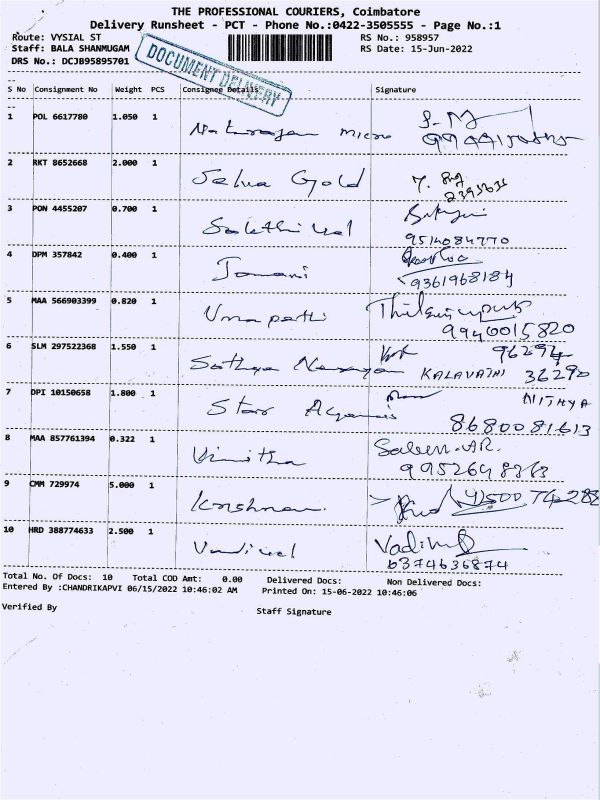 THE PROFESSIONAL COURIERS, Coimbatore
Delivery Runsheet - PCT - Phone No.:0422-3505555 - Page No.:1
Route: VYSIAL ST RS No.: 958957
Staff: BALA SHANMUGAM RS Date: 15-Jun-2022
DRS No.: DCJB95895701
DOCUMENT DELIVERY
S No Consignment No Weight PCS Consignee Details Signature
1 POL 6617780 1.050 1 Natarajan micro
2 RKT 8652668 2.000 1 Selva Gold
3 PON 4455207 0.700 1 Sakthi vel
9514084770
4 DPM 357842 0.400 1
9361968184
5 MAA 566903399 0.820 1 Uma pathi
9940015820
6 SLM 297522368 1.550 1 Sathya Narayan 96294
KALAVATHI 36290
7 DPI 10150658 1.800 1 Star NITHYA
8680081613
8 MAA 857761394 0.322 1 Vinitha
9 CMM 729974 5.000 1 Krishnan
10 HRD 388774633 2.500 1 Vadivel Vadivel
6374636874
Total No. Of Docs: 10 Total COD Amt: 0.00 Delivered Docs: Non Delivered Docs:
Entered By :CHANDRIKAPVI 06/15/2022 10:46:02 AM Printed On: 15-06-2022 10:46:06
Verified By Staff Signature